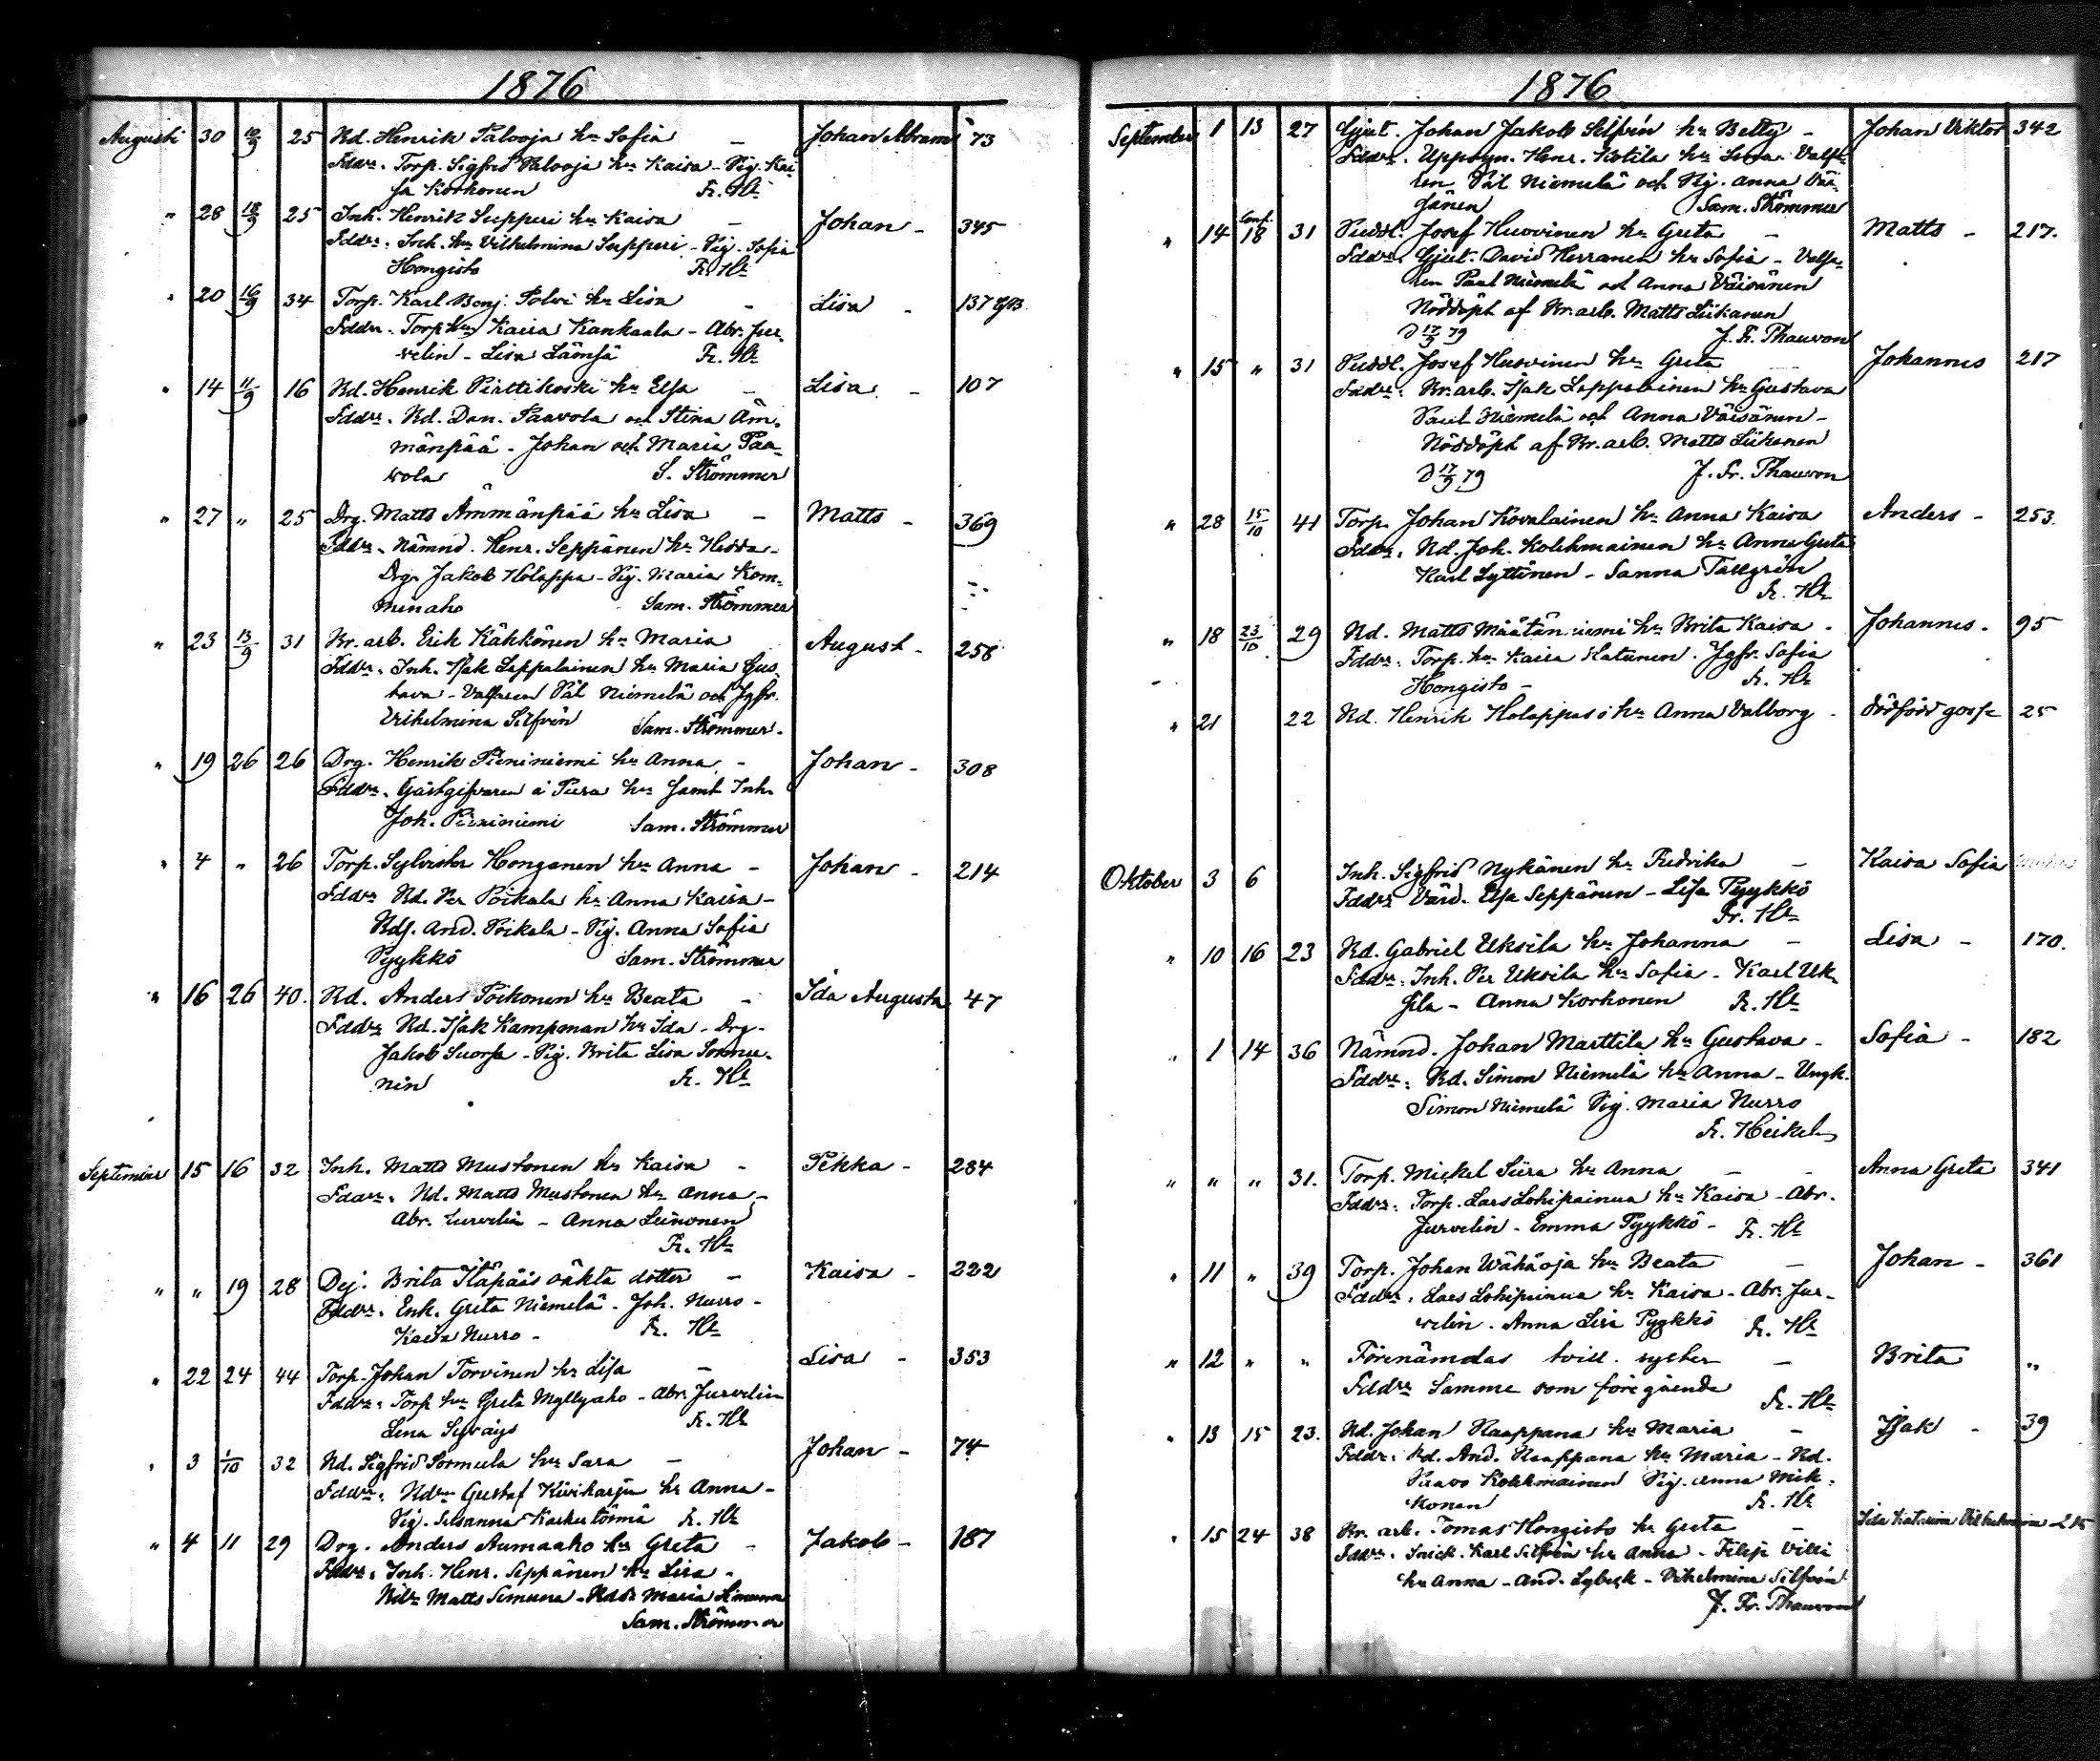 1876
Augusti 30 10/9 25 Nd. Henrik Palooja hu Sofia – Johan Abram 73
Fddr: Torp. Sigfrid Palooja hu Kaisa – Pig. Kai-
sa Korhonen Fr. Hl
" 28 18/9 25 Inh. Henrik Supperi hu Kaisa – Johan – 345
Fddr: Inh. hu Vilhelmina Supperi – Pig. Sofia
Hongisto Fr. Hl
" 20 16/9 34 Torp. Karl Benj. Polvi hu Lisa – Lisa – 137
Fddr: Torp hu Kaisa Kankaala – Abr. Jur-
velin – Lisa Lämsä Fr. Hl
" 14 11/9 16 Nd. Henrik Piattikoski hu Elsa – Lisa – 107
Fddr: Nd. Dan. Paavola och Stina Äm-
mänpää – Johan och Maria Paa-
vola S. Strömmer
" 27 " 25 Drg. Matts Ämmänpää hu Lisa – Matts – 369
Fddr: Nämnd. Henr. Seppänen hu Hedda –
Drg. Jakob Holappa – Pig. Maria Kom-
minaho Sam. Strömmer
" 23 13/9 31 Br. arb. Erik Kähkönen hu Maria August – 258
Fddr: Inh. Isak Lappalainen hu Maria Gus-
tava – Valsaren Pål Niemelä och Jgfr.
Vilhelmina Silfvén Sam. Strömmer
" 19 26 26 Drg. Henrik Pieniniemi hu Anna – Johan – 308
Fddr: Gästgifvaren å Piera hu samt Inh.
Joh. Pieniniemi Sam. Strömmer
" 4 " 26 Torp. Sylvester Honganen hu Anna – Johan – 214
Fddr: Nd. Per Poikala hu Anna Kaisa –
Nds. And. Poikala – Pig. Anna Sofia
Pyykkö Sam. Strömmer
" 16 26 40 Nd. Anders Poikonen hu Beata – Ida Augusta 47
Fddr: Nd. Isak Kampman hu Ida – Drg.
Jakob Suorsa – Pig. Brita Lisa Sormu-
nin Fr. Hl
September 15 16 32 Inh. Matts Mustonen hu Kaisa – Pekka – 284
Fddr: Nd. Matts Mustonen hu Anna –
Abr. Jurvelin – Anna Leinonen
Fr. Hl
" " 19 28 Dej. Brita Itäpääs oäkta dotter – Kaisa – 222
Fddr: Enk. Greta Niemelä – Joh. Nurro –
Kaisa Nurro – Fr. Hl
" 22 24 44 Torp. Johan Torvinen hu Lisa – Lisa – 353
Fddr: Torp hu Greta Myllyaho – Abr. Jurvelin
Lena Fr. Hl
" 3 1/10 32 Nd. Sigfrid Sormula hu Sara – Johan – 74
Fddr: Gustaf Kiviharju hu Anna –
Pig. Susanna Fr. Hl
" 4 11 29 Drg. Anders Aumaaho hu Greta – Jakob – 187
Fddr: Inh. Henr. Seppänen hu Lisa –
Matts Simuna – Maria Simuna
Sam. Strömmer
1876
September 1 13 27 Gjut. Johan Jakob Silfvén hu Betty – Johan Viktor 342
Fddr: Uppsyn. Henr. Kotila hu Valsa-
ren Pål Niemelä och Pig. Anna Väi-
sänen Sam. Strömmer
" 14 Conf. 18 31 Puddl. Josef Huovinen hu Greta – Matts – 217.
Fddr: Gjut. David Herranen hu Sofia – Valsa-
ren Paul Niemelä och Anna Väisänen
Nöddöpt af Br. arb. Matts Liikanen
J. Fr. Thauvon
" 15 " 31 Puddl. Josef Huovinen hu Greta Johannes 217
Fddr: Br. arb. Isak Lappalainen hu Gustava
Paul Niemelä och Anna Väisänen –
Nöddöpt af Br. arb. Matts Liikanen
D 17/9 79 J. Fr. Thauvon
" 28 15/10 41 Torp. Johan Kovalainen hu Anna Kaisa Anders – 253.
Fddr: Nd. Joh. Kolehmainen hu Anna Greta
Karl Lyttinen – Sanna Tallgrén
Fr. Hl
" 18 23/10 29 Nd. Matts Määtänniemi hu Brita Kaisa – Johannes – 95
Fddr: Torp. hu Kaisa Hatunen – Jgfr. Sofia
Hongisto – Fr. Hl
" 21 22 Nd. Henrik Holappas o hu Anna Valborg – dödfödd gosse 25
Oktober 3 6 Inh. Sigfrid Nykänen hu Fredrika – Kaisa Sofia
Fddr: Värd. Elsa Seppänen – Lisa Pyykkö
Fr. Hl
" 10 16 23 Nd. Gabriel Uksila hu Johanna – Lisa – 170.
Fddr: Inh. Per Uksila hu Sofia – Karl Uk-
sila – Anna Korhonen Fr. Hl
" 1 14 36 Nämnd. Johan Marttila hu Gustava – Sofia – 182
Fddr: Nd. Simon Niemelä hu Anna – Ungk.
Simon Niemelä Pig. Maria Nurro
Fr. Heikel
" " " 31. Torp. Mickel Siira hu Anna – – Anna Greta 341
Fddr: Torp. Lars Lohipainua hu Kaisa – Abr.
Jurvelin – Emma Pyykkö – Fr. Hl
" 11 " 39 Torp. Johan Wähäoja hu Beata – Johan – 361
Fddr: Lars Lohipainua hu Kaisa – Abr. Jur-
velin – Anna Lisa Pyykkö Fr. Hl
" 12 " " Förenämdas tvill. syster – Brita "
Fddr: Samme som föregående Fr. Hl
" 13 15 23. Nd. Johan Haappana hu Maria – Isak – 39
Fddr: Nd. And. Haappana hu Maria – Nd.
Paavo Kolehmainen Pig. Anna Mik-
konen Fr. Hl
" 15 24 38 Br. arb. Tomas Hongisto hu Greta – Ida Katarina Vilhelmina
Fddr: Snick. Karl Silfvén hu Anna – Filip Villi
hu Anna – And. Lybeck – Vilhelmina Silfvén
J. Fr. Thauvon